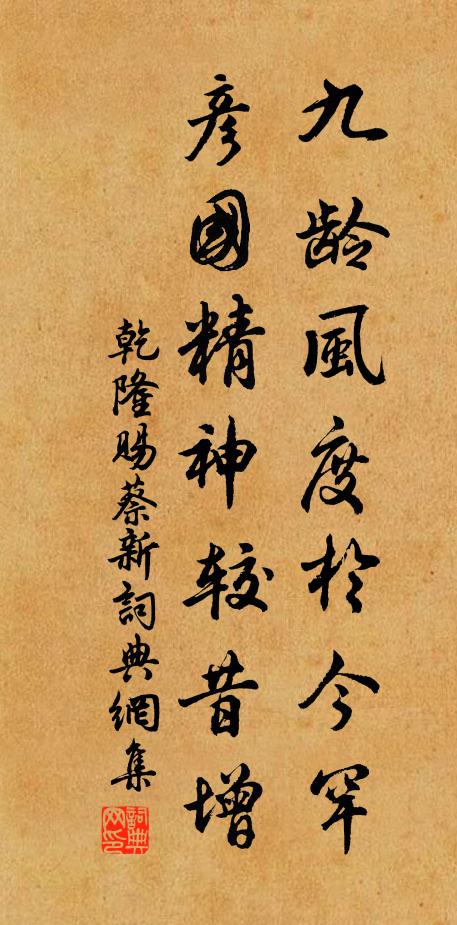 九龄風度於今罕
彦國精神較昔增
乾隆賜蔡新詞典網集
詞典网印